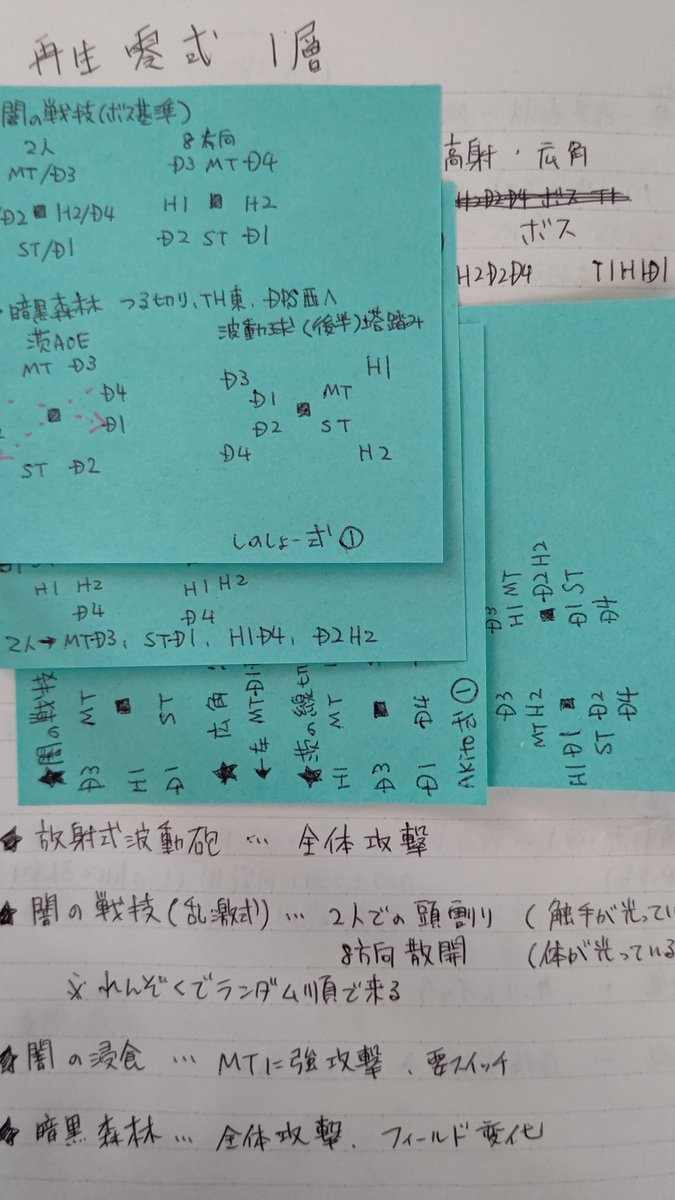 再生零式 1層
闇の戦技(ボス基準)
2人 8方向
MT/D3 D3 MT D4
D2 ■ H2/D4 H1 ■ H2
ST/D1 D2 ST D1
暗黒森林 つる切り、TH東、DPS西へ
茨AOE 波動球(後半)塔踏み
MT D3
D4
D1
ST D2
H1
D3
D1 MT
D2 ST
D4 H2
しのしょー式①
高射・広角
ボス
H2D2D4 T1H1D1
H1 H2 H1 H2
D4 D4
2人→MTD3、STD1、H1D4、D2H2
★闇の戦技
D3 MT
H1 ■
D1 ST
★広角
★茨の線
H1 MT
D3 ■
D1 D4
Akito式①
D3
H1 MT
■ D2H2
D1 ST
D4
D3
MT H2
H1 D1 ■
ST D2
D4
★放射式波動砲 … 全体攻撃
★闇の戦技(乱激式) … 2人での頭割り (触手が光ってい
8方向散開 (体が光っている
※れんぞくでランダム順で来る
★闇の浸食 … MTに強攻撃、要スイッチ
★暗黒森林 … 全体攻撃、フィールド変化